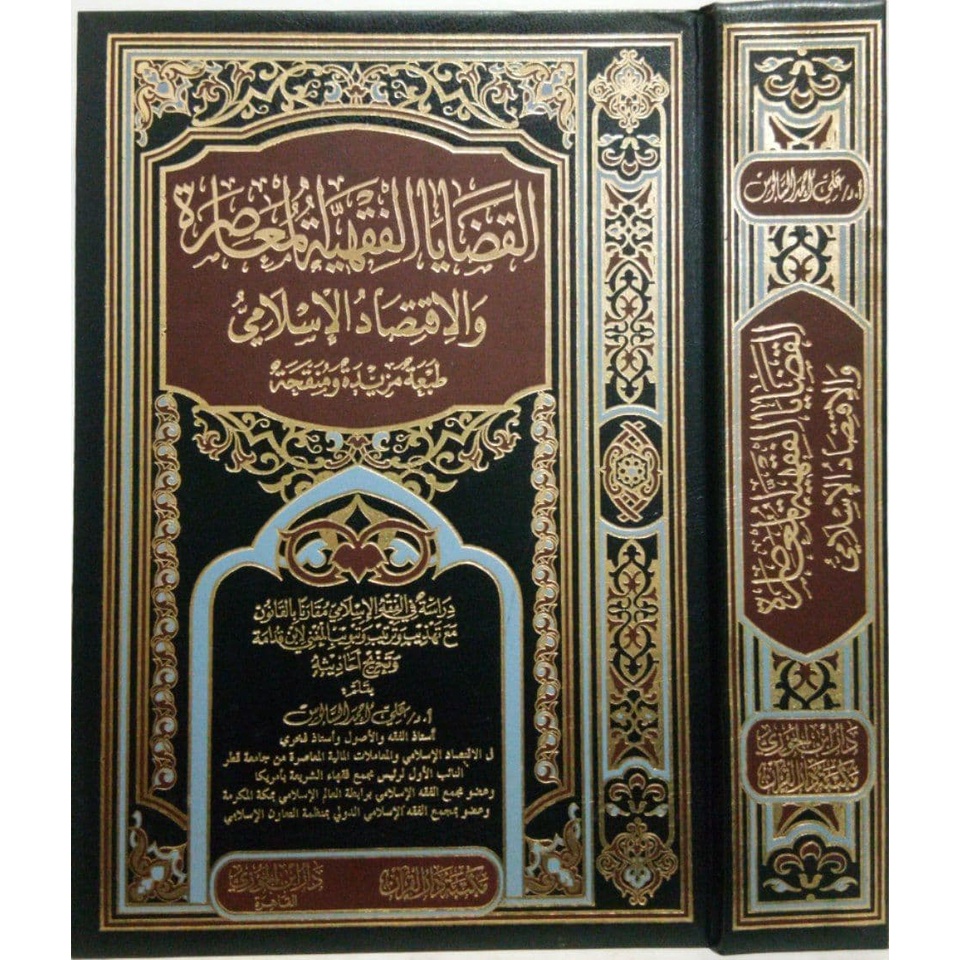 القضايا الفقهية المعاصرة
والاقتصاد الإسلامي
طبعة مزيدة ومنقحة
دراسة في الفقه الإسلامي مقارنا بالقانون
مع تهذيب وترتيب وتبويب المغني لابن قدامة
وتخريج أحاديثه
بقلم
أ.د/ علي أحمد السالوس
أستاذ الفقه والأصول وأستاذ فخري
فى الاقتصاد الإسلامي والمعاملات المالية المعاصرة من جامعة قطر
النائب الأول لرئيس مجمع فقهاء الشريعة بأمريكا
وعضو مجمع الفقه الإسلامي برابطة العالم الإسلامي بمكة المكرمة
وعضو بمجمع الفقه الإسلامي الدولي بمنظمة التعاون الإسلامي
مكتبة دار القرآن
دار ابن الجوزي
القاهرة
أ.د/ علي أحمد السالوس
القضايا الفقهية المعاصرة
والاقتصاد الإسلامي
دار ابن الجوزي
مكتبة دار القرآن